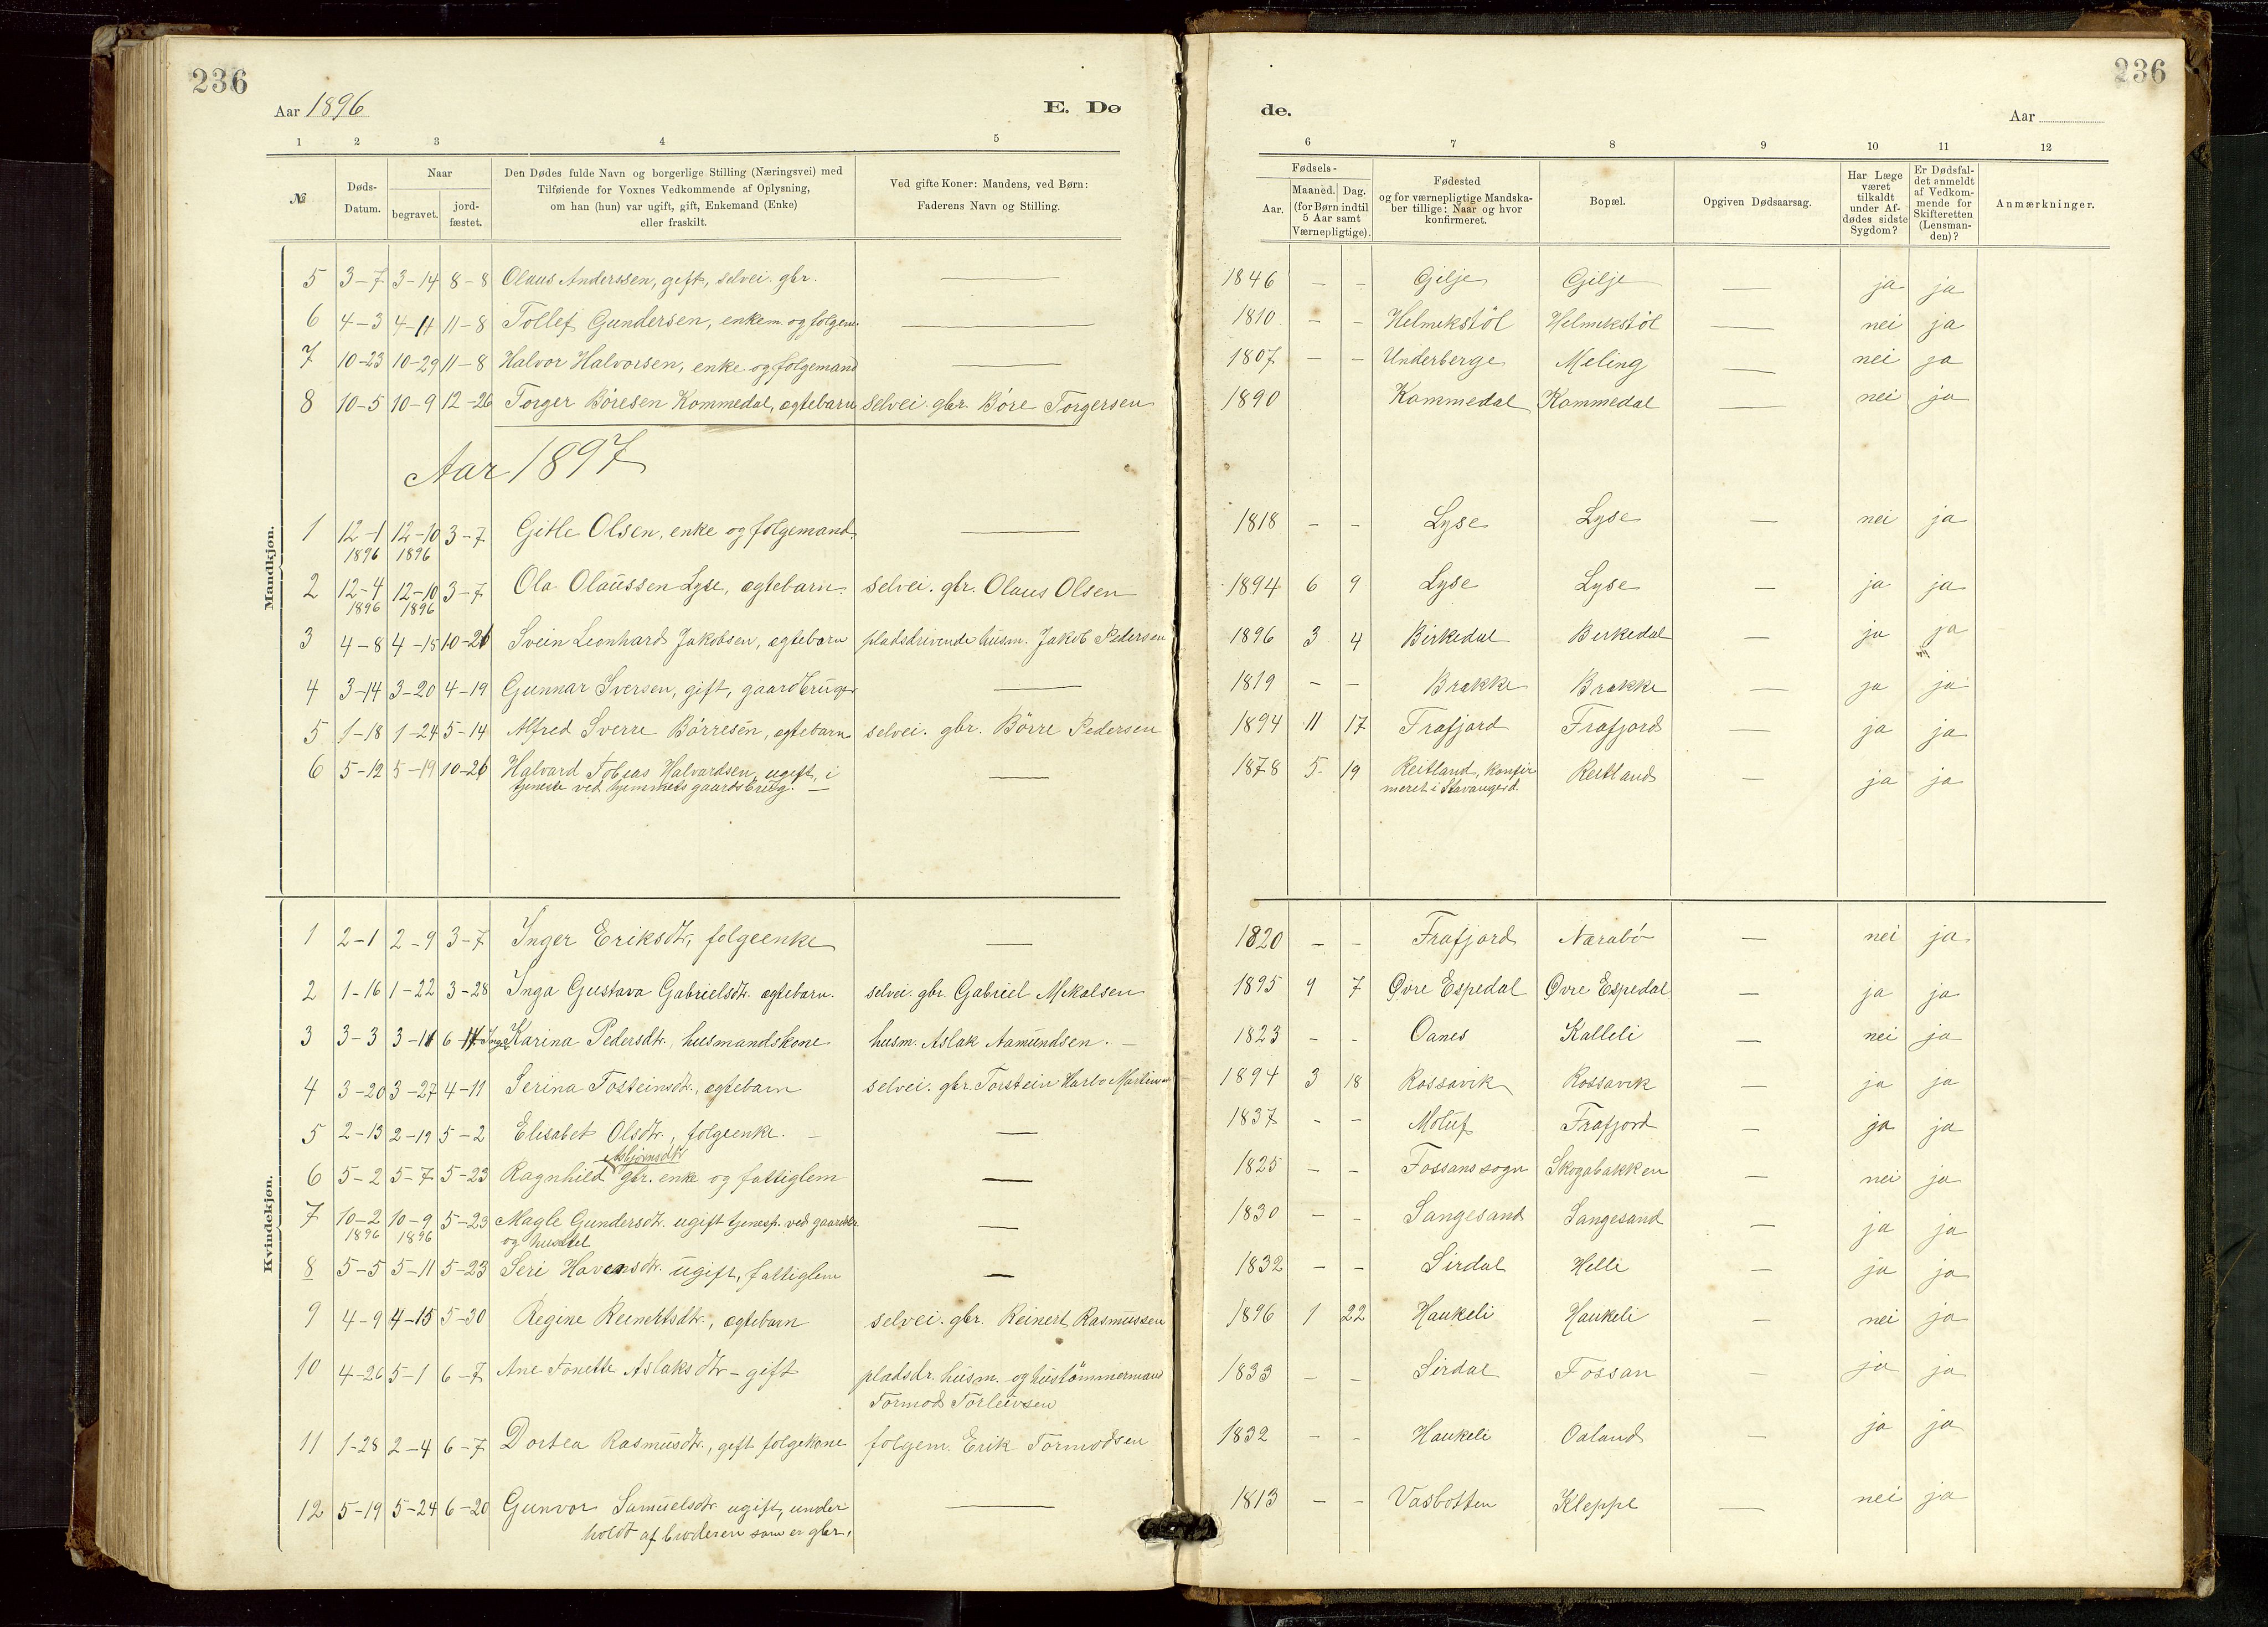 236
Aar 1896
E. Dø
de.
Aar
236
1 2 3 4 5 6 7 8 9 10 11 12
№
Døds-Datum.
Naar
begravet.
jord-fæstet.
Den Dødes fulde Navn og borgerlige Stilling (Næringsvei) med
Tilføiende for Voxnes Vedkommende af Oplysning,
om han (hun) var ugift, gift, Enkemand (Enke)
eller fraskilt.
Ved gifte Koner: Mandens, ved Børn:
Faderens Navn og Stilling.
Fødsels-
Aar.
Maaned. Dag.
(for Børn indtil
5 Aar samt
Værnepligtige).
Fødested
og for værnepligtige Mandska-
ber tillige: Naar og hvor
konfirmeret.
Bopæl.
Opgiven Dødsaarsag.
Har Læge
været
tilkaldt
under Af-
dødes sidste
Sygdom?
Er Dødsfal-
det anmeldt
af Vedkom-
mende for
Skifteretten
(Lensman-
den)?
Anmærkninger.
Mandkjøn.
5 3-7 3-14 8-8 Olaus Anderssen, gift, selvei. gbr. — 1846 - - Gilje Gilje — ja ja
6 4-3 4-11 11-8 Tollef Gundersen, enkem. og folgem. — 1810 - - Helmikstöl Helmikstöl — nei ja
7 10-23 10-29 11-8 Halvor Halvorsen, enke og folgemand — 1807 - - Underberge Meling — nei ja
8 10-5 10-9 12-26 Torger Böresen Kommedal, ægtebarn selvei. gbr. Böre Torgersen 1890 Kommedal Kommedal — nei ja
Aar 1897
1 12-1 12-10 3-7 Gitle Olsen, enke og folgemand. — 1818 - - Lyse Lyse — nei ja
1896 1896
2 12-4 12-10 3-7 Ola Olaussen Lyse, ægtebarn. selvei. gbr. Olaus Olsen 1894 6 9 Lyse Lyse — ja ja
1896 1896
3 4-8 4-15 10-26 Svein Leonhard Jakobsen, ægtebarn pladsdrivende husm. Jakob Pedersen 1896 3 4 Birkedal Birkedal — ja ja
4 3-14 3-20 4-19 Gunnar Iversen, gift, gaardbruger — 1819 - - Brække Brække — ja ja
5 1-18 1-24 5-14 Alfred Sverre Börresen, ægtebarn selvei. gbr. Börre Pedersen 1894 11 17 Frafjord Frafjord — ja ja
6 5-12 5-19 10-26 Halvard Tobias Halvardsen, ugift, i — 1878 5 19 Reitland, konfir Reitland — ja ja
tjeneste ved hjemmets gaardsbrug. — meret i Stavanger d.
Kvindekjøn.
1 2-1 2-9 3-7 Inger Eriksdtr, folgeenke — 1820 - - Frafjord Nærabö — nei ja
2 1-16 1-22 3-28 Inga Gustava Gabrielsdtr. ægtebarn. selvei. gbr. Gabriel Mikalsen 1895 9 7 Øvre Espedal Øvre Espedal — ja ja
3 3-3 3-11 6-14 Inga Karina Pedersdtr., husmandskone husm. Aslak Aamundsen. — 1823 - - Oanes Kalleli — nei ja
4 3-20 3-27 4-11 Serina Tosteinsdtr., ægtebarn selvei. gbr. Torstein Harbo Martinsen 1894 3 18 Rossavik Rossavik — ja ja
5 2-13 2-19 5-2 Elisabet Olsdtr., folgeenke. — 1837 - - Molauf Frafjord — ja ja
Asbjörnsdtr
6 5-2 5-7 5-23 Ragnhild gbr. enke og fattiglem — 1825 - - Fossans sogn Skogabakken — nei ja
7 10-2 10-9 5-23 Magle Gundersdtr. ugift tjenesp. ved gaardsbr. — 1830 - - Sangesand Sangesand — ja ja
1896 1896 og husstel
8 5-5 5-11 5-23 Seri Havensdtr. ugift, fattiglem — 1832 - - Sirdal Helle — ja ja
9 4-9 4-15 5-30 Regine Reinertsdtr., ægtebarn selvei. gbr. Reinert Rasmussen 1896 1 22 Haukeli Haukeli — nei ja
10 4-26 5-1 6-7 Ane Tonette Aslaksdtr - gift pladsdr. husm. og hustömmermand 1833 - - Sirdal Fossan — ja ja
Tormod Torleivsen
11 1-28 2-4 6-7 Dortea Rasmusdtr., gift folgekone folgem. Erik Tormodsen 1832 - - Haukeli Oaland — ja ja
12 5-19 5-24 6-20 Gunvor Samuelsdtr. ugift, under — 1813 - - Vasbotten Kleppe — nei ja
holdt af broderen som er gbr.